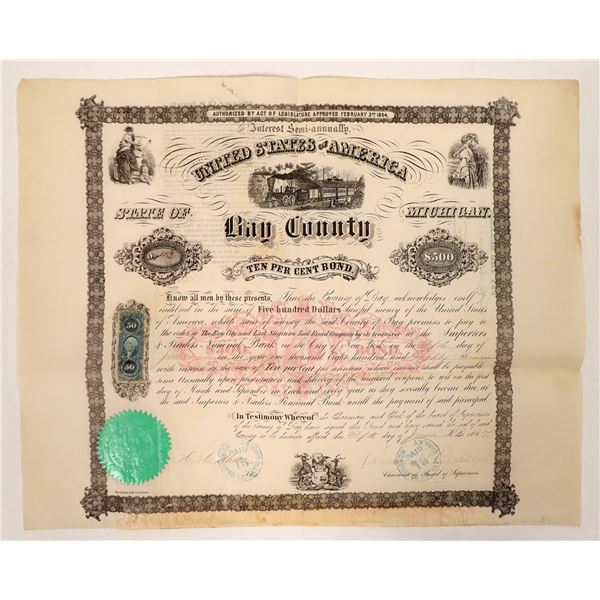 AUTHORIZED BY ACT OF LEGISLATURE APPROVED FEBRUARY 3RD 1864.
Interest Semi-annually.
UNITED STATES OF AMERICA
STATE OF MICHIGAN.
Bay County
$500
TEN PER CENT BOND.
Know all men by these presents, That the County of Bay acknowledges itself
indebted in the sum Five hundred Dollars lawful money of the United States
of America, which sum of money the said County of Bay promises to pay to
the order of The Bay City and East Saginaw Rail Road Company or its treasurer at the Importers
& Traders National Bank in the City of New York on the day of
in the year one thousand Eight hundred and
with interest at the rate of Ten per Cent per annum which interest shall be payable
Semi Annually upon presentation and delivery of the annexed coupons to wit on the first
day of March and September in Each and Every year as they severally become due at
the said Importers & Traders National Bank until the payment of said principal
In Testimony Whereof the Chairman and Clerk of the board of Supervisors
of the County of Bay have signed this Bond and have caused the seal of said
County to be hereunto affixed the day of
PAID
PAID
Chairman of Board of Supervisors
50
50